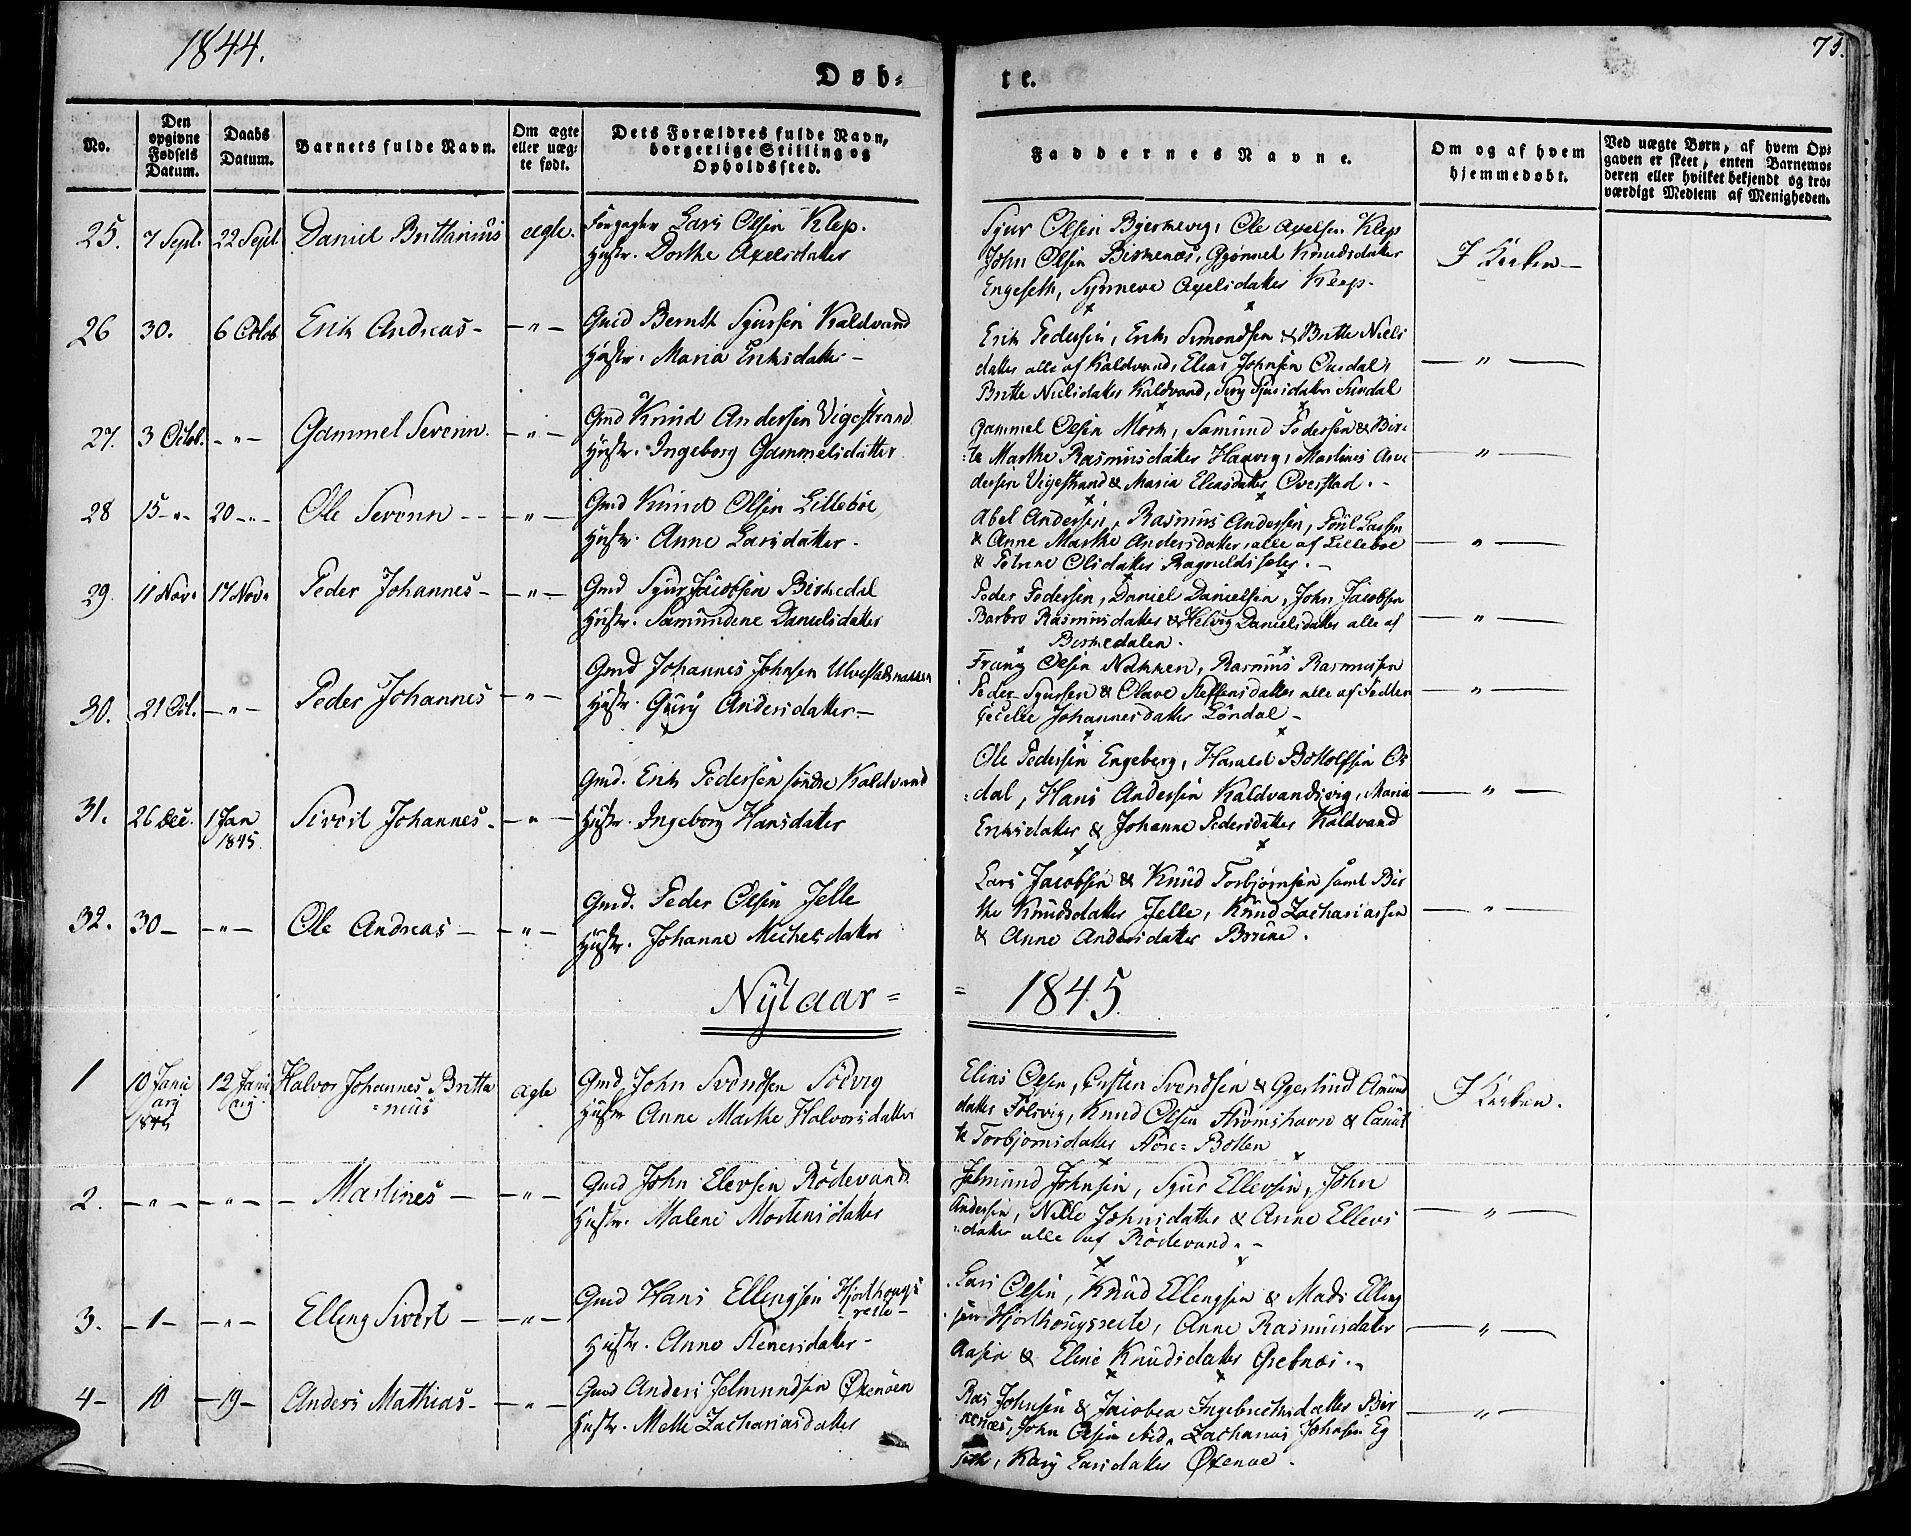 1844.
75.
Døb-
te.
No.
Den opgivne Fødsels Datum.
Daabs Datum.
Barnets fulde Navn.
Om ægte eller uæg-te født.
Dets Forældres fulde Navn, borgerlige Stilling og Opholdsfted.
Faddernes Navne.
Om og af hvem hjemmedøbt.
Ved uægte Børn, af hvem Op-
gaven er skeet, enten Barnemo-
deren eller hvilket bekjendt og tro-
værdigt Medlem af Menigheden.
25. 7 Sept. 22 Sept Daniel Brittanius ægte. Forpagter Lars Olsen Klep.
Hustr. Dorthe Axelsdatter
Sjur Olsen Bjerknevig, Ole Axelsen Klep
John Olsen Birkenæs, Gjønnel Knudsdatter
Engeseth, Synneve Axelsdatter Klep.
I Kirken —
26 30. 6 Octob Erik Andreas — — " — Gmd Bernth Sjursen Kaldvand
Hustr. Maria Eriksdatter —
Erik Pedersen, Erik Simondsen & Britte Niels
datter alle af Kaldvand, Elias Johnsen Osdal,
Britte Nielsdatter Kaldvand, Siry Sjursdatter Sundal
— " —
27. 3 Octob. — " — Gammel Severin. — " — Gmd Knud Andersen Vigestrand
Hustr. Ingeborg Gammelsdatter
Gammel Olsen Mork, Samund Pedersen & Bir-
te Marthe Rasmusdatter Haavig, Martines An-
dersen Vigestrand & Maria Eliasdatter Overstad. —
— " —
28 15 — " — 20 — " — Ole Severin — — " — Gmd Knud Olsen Lillebøe
Hustr. Anne Larsdatter —
Abel Andersen, Rasmus Andersen, Poul Larsen
& Anne Marthe Andersdatter, alle af Lillebøe
& Petrine Olsdatter Ragnildssæter. —
— " —
29. 11 Nov. 17 Nov. Peder Johannes — — " — Gmd Sjur Jacobsen Birkedal
Hustr. Samundene Danielsdatter
Peder Pedersen, Daniel Danielsen, John Jacobsen
Barbro Rasmusdatter & Helvig Danielsdatter alle af
Birkedalen.
— " —
30. 21 Oct. — " — Peder Johannes — " — Gmd Johannes Johnsen Ulvestad
Hustr. Gury Andersdatter —
Franz Olsen Nakken, Rasmus Rasmusen
Peder Sjursen & Olave Steffensdatter alle af
Johannesdatter Løndal —
— " —
31. 26 Dec. 1 Jan 1845. Sivert Johannes. — " — Gmd. Erik Pedersen søndre Kaldvand
Hustr. Ingeborg Hansdatter
Ole Pedersen Engeberg, Harald Bottolfsen Os-
dal, Hans Andersen Kaldvandsvig, Maria
Eriksdatter & Johanne Pedersdatter Kaldvand
— " —
32. 30 — — " — Ole Andreas — — " — Gmd. Peder Olsen Jelle
Hustr. Johanne Michelsdatter
Lars Jacobsen & Knud Torbjørnsen samt Bir
the Knudsdatter Jelle, Knud Zachariassen
& Anne Andersdatter Brune.
— " —
Nytaar = = 1845.
1 10 Janu ary 1845 12 Janu ary. Halvor Johannes Britta
=nius ægte Gmd, John Svendsen Solvig
Hustr Anne Marthe Halvorsdatter
Elias Olsen, Gusten Svendsen & Gjerlind Amund
datter Solsvig, Knud Olsen Strømshavn & Canut
te Torbjørnsdatter Store=Botten
I Kirken.
2. — " — — " — — Martines — — " — Gmd John Elevsen Rødevand
Hustr. Malene Mortensdatter
Jelmund Johnsen, Sjur Ellevsen, John
Andersen, Nille Johnsdatter & Anne Ellevs
datter alle af Rødevand. —
— " —
3. — 1 — — " — Elling Sivert — — " — Gmd Hans Ellingsen Hjorthougs
reite —
Hustr. Anne Stenersdatter —
Lars Olsen, Knud Ellingsen & Mads Elling
sen Hjorthougsreite, Anne Rasmusdatter
Aasen & Eline Knudsdatter Grebnes. —
— " —
4 — 10 — 19 — Anders Mathias — — " — Gmd Anders Jelmundsen Øxenøen
Hustr. Mette Zachariasdatter
Ras Johnsen & Jacobea Ingebrethsdatter Bir
kenæs, John Olsen ibid, Zacharias Johnsen Eg
seth, Kary Larsdatter Øxenøe.
— " —